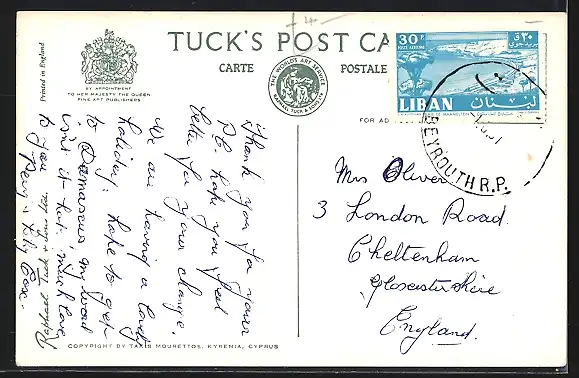 TUCK'S POST CA
CARTE POSTALE
Printed in England
BY APPOINTMENT
TO HER MAJESTY THE QUEEN
FINE ART PUBLISHERS
THE WORLD'S ART SERVICE
RAPHAEL TUCK & SONS LTD
FOR AD
30P
POSTE AERIENNE
٣٠ق
بريد جوي
LIBAN لبنان
BAIE DE MAAMELTEIN
BEYROUTH R.P.
Thank you for your
P.C. hope you feel
better for your change
We are having a lovely
holiday; hope to get
to Damascus, my word
isn't it hot; much love
to you
Percy & Lily Cox.
Raphael Tuck & Sons Ltd.
Mrs Oliver
3 London Road.
Cheltenham
Gloucestershire
England.
COPYRIGHT BY TAKIS MOURETTOS, KYRENIA, CYPRUS